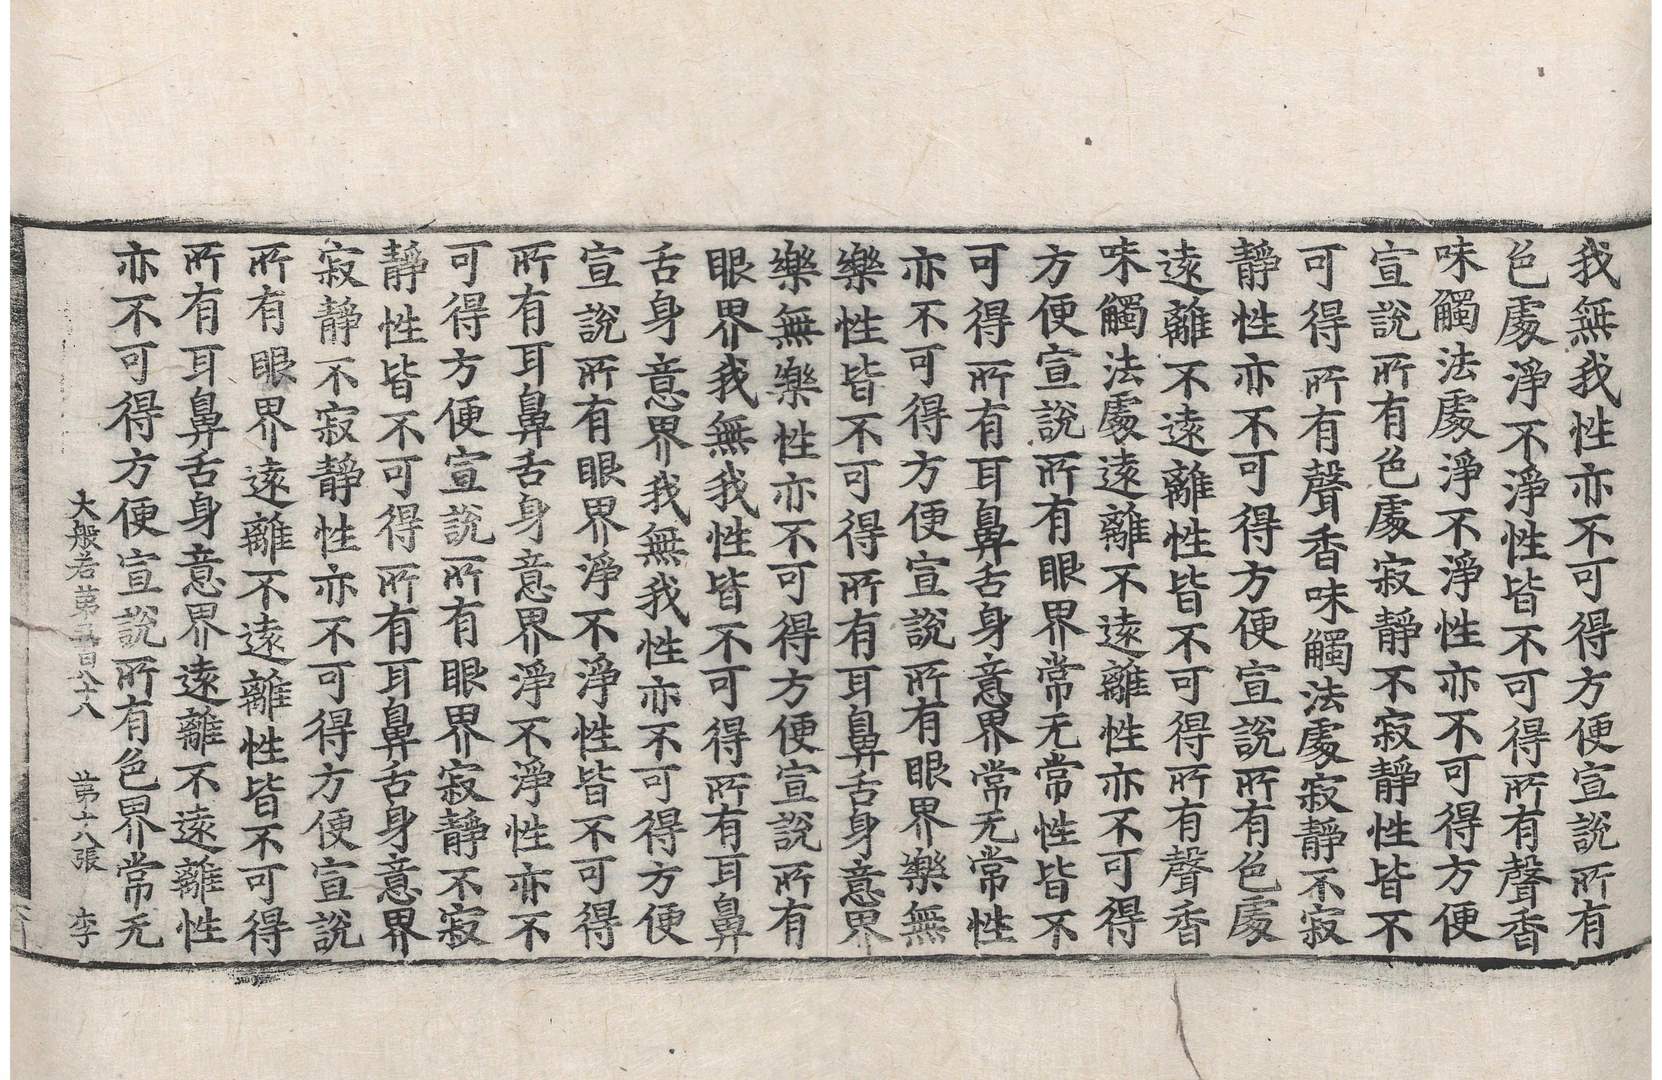 我無我性亦不可得方便宣說所有
色處淨不淨性皆不可得所有聲香
味觸法處淨不淨性亦不可得方便
宣說所有色處寂靜不寂靜性皆不
可得所有聲香味觸法處寂靜不寂
靜性亦不可得方便宣說所有色處
遠離不遠離性皆不可得所有聲香
味觸法處遠離不遠離性亦不可得
方便宣說所有眼界常无常性皆不
可得所有耳鼻舌身意界常无常性
亦不可得方便宣說所有眼界樂無
樂性皆不可得所有耳鼻舌身意界
樂無樂性亦不可得方便宣說所有
眼界我無我性皆不可得所有耳鼻
舌身意界我無我性亦不可得方便
宣說所有眼界淨不淨性皆不可得
所有耳鼻舌身意界淨不淨性亦不
可得方便宣說所有眼界寂靜不寂
靜性皆不可得所有耳鼻舌身意界
寂靜不寂靜性亦不可得方便宣說
所有眼界遠離不遠離性皆不可得
所有耳鼻舌身意界遠離不遠離性
亦不可得方便宣說所有色界常无
大般若第五百八十八 第十八張 李